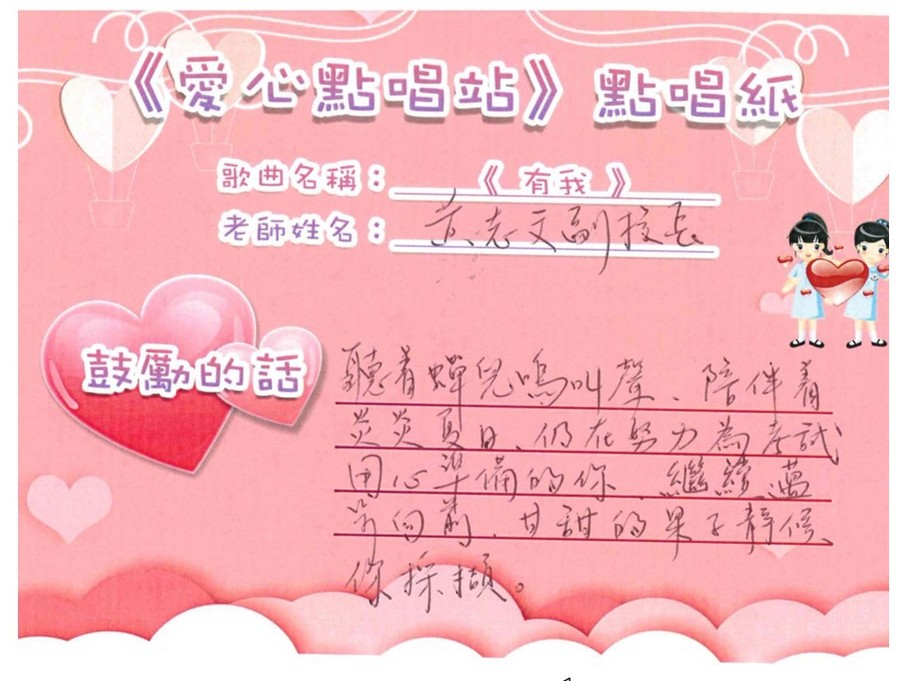 《愛心點唱站》點唱紙
歌曲名稱：《 有我 》
老師姓名：黃志文副校長
鼓勵的話
聽着蟬兒鳴叫聲、陪伴着
炎炎夏日、仍在努力為考試
用心準備的你、繼續邁
步向前、甘甜的果子靜候
你採擷。